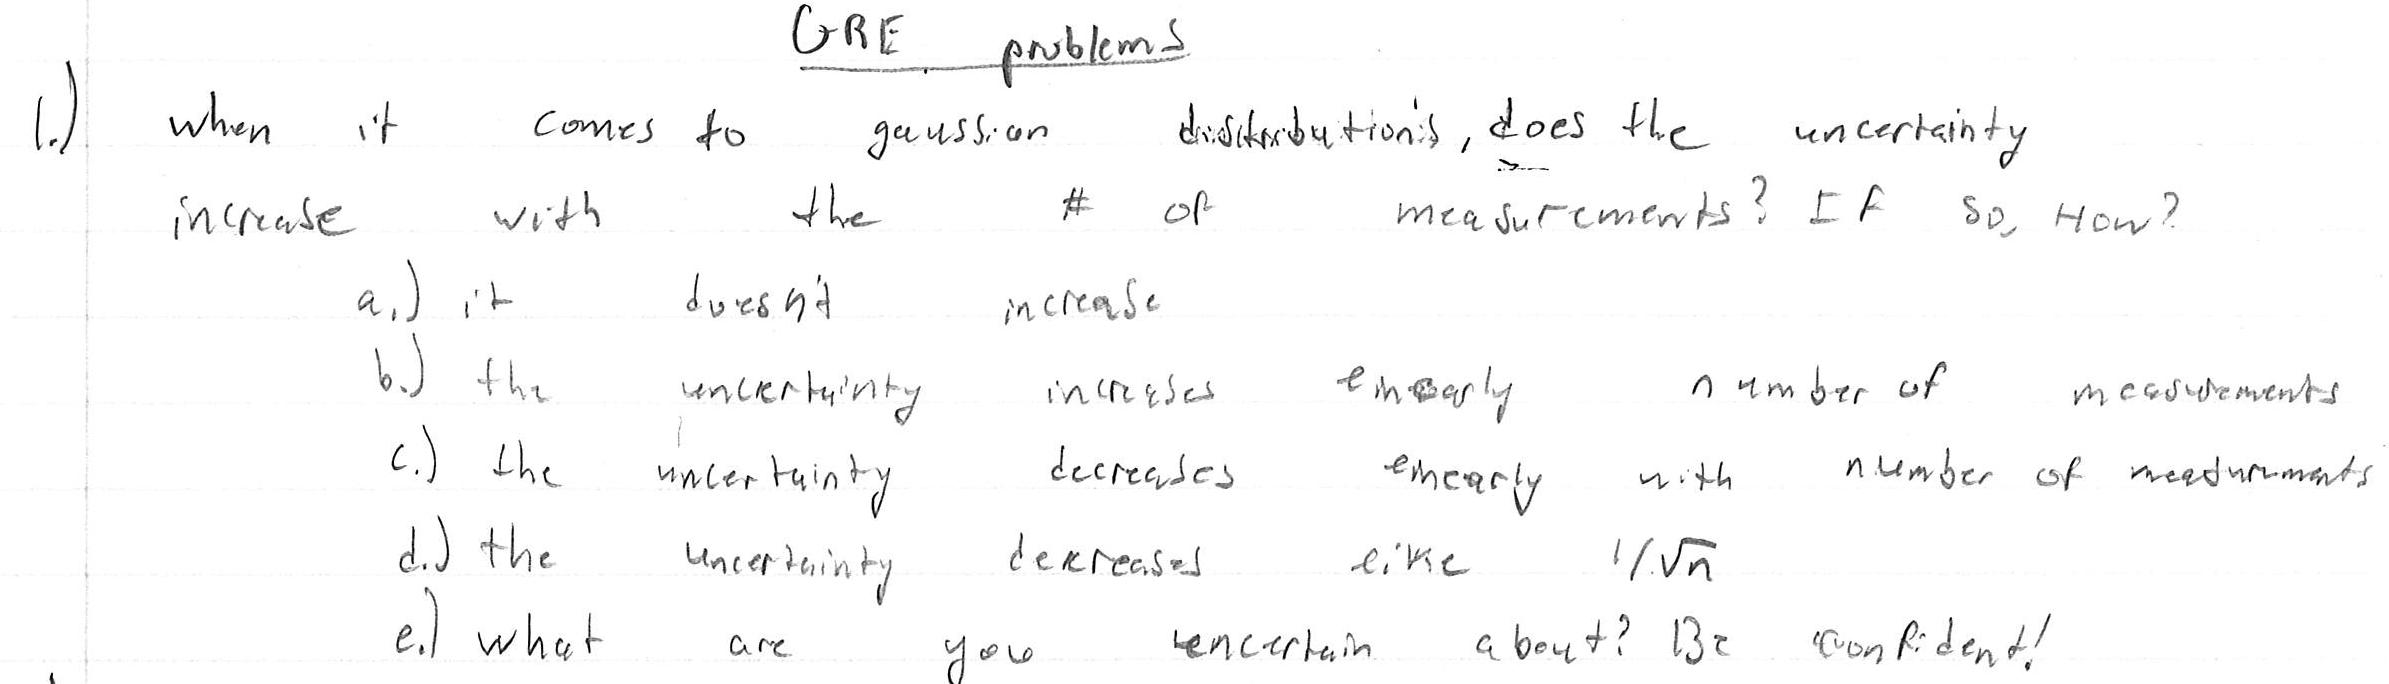 GRE problems
1.) when it comes to gaussian distribution's, does the uncertainty
increase with the # of measurements? If so, How?
a.) it doesn't increase
b.) the uncertainty increases linearly number of measurements
c.) the uncertainty decreases linearly with number of measurments
d.) the uncertainty decreases like 1/√n
e.) what are you uncertain about? Be confident!